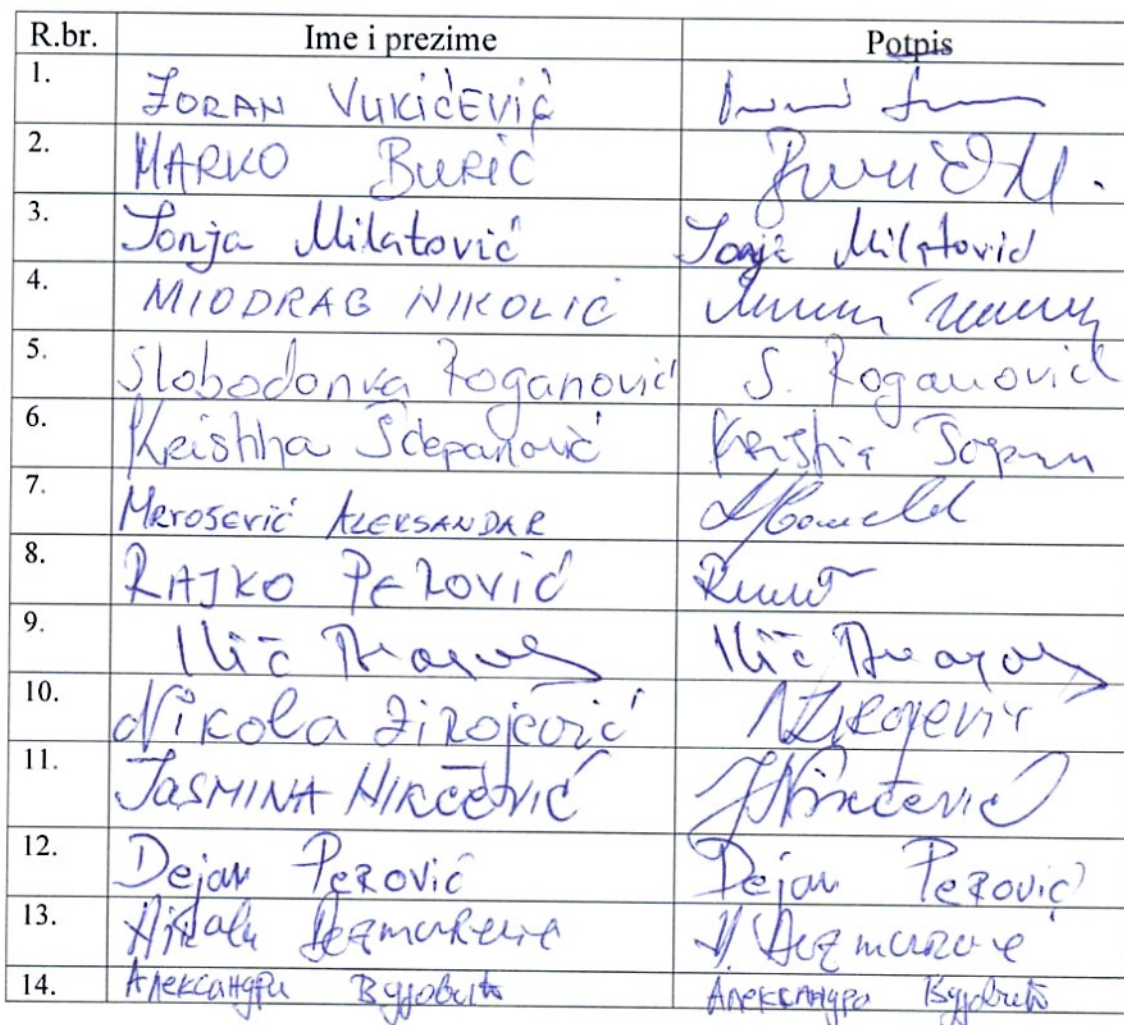 R.br. Ime i prezime Potpis
1. ZORAN VUKIĆEVIĆ
2. MARKO BURIĆ
3. Sonja Milatović Sonja Milatović
4. MIODRAG NIKOLIĆ
5. Slobodanka Roganović S. Roganović
6. Šćepanović
7. MRVOŠEVIĆ ALEKSANDAR
8. RAJKO PEROVIĆ
9. Ilić Ilić
10. Nikola Zirojević N Zirojević
11. JASMINA NIKČEVIĆ J Nikčević
12. Dejan Perović Dejan Perović
13. Nikola N.
14. Александра Вујовић Александра Вујовић